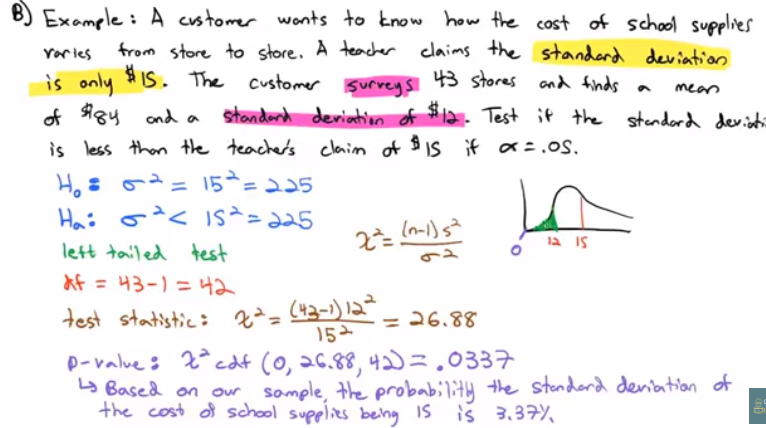 B) Example: A customer wants to know how the cost of school supplies
varies from store to store. A teacher claims the standard deviation
is only $15. The customer surveys 43 stores and finds a mean
of $84 and a standard deviation of $12. Test if the standard deviati
is less than the teacher's claim of $15 if α = .05.
H₀: σ² = 15² = 225
Hₐ: σ² < 15² = 225
left tailed test
df = 43-1 = 42
χ² = (n-1)s² / σ²
0 12 15
test statistic: χ² = (43-1)12² / 15² = 26.88
p-value: χ²cdf (0, 26.88, 42) = .0337
↳ Based on our sample, the probability the standard deviation of
the cost of school supplies being 15 is 3.37%.